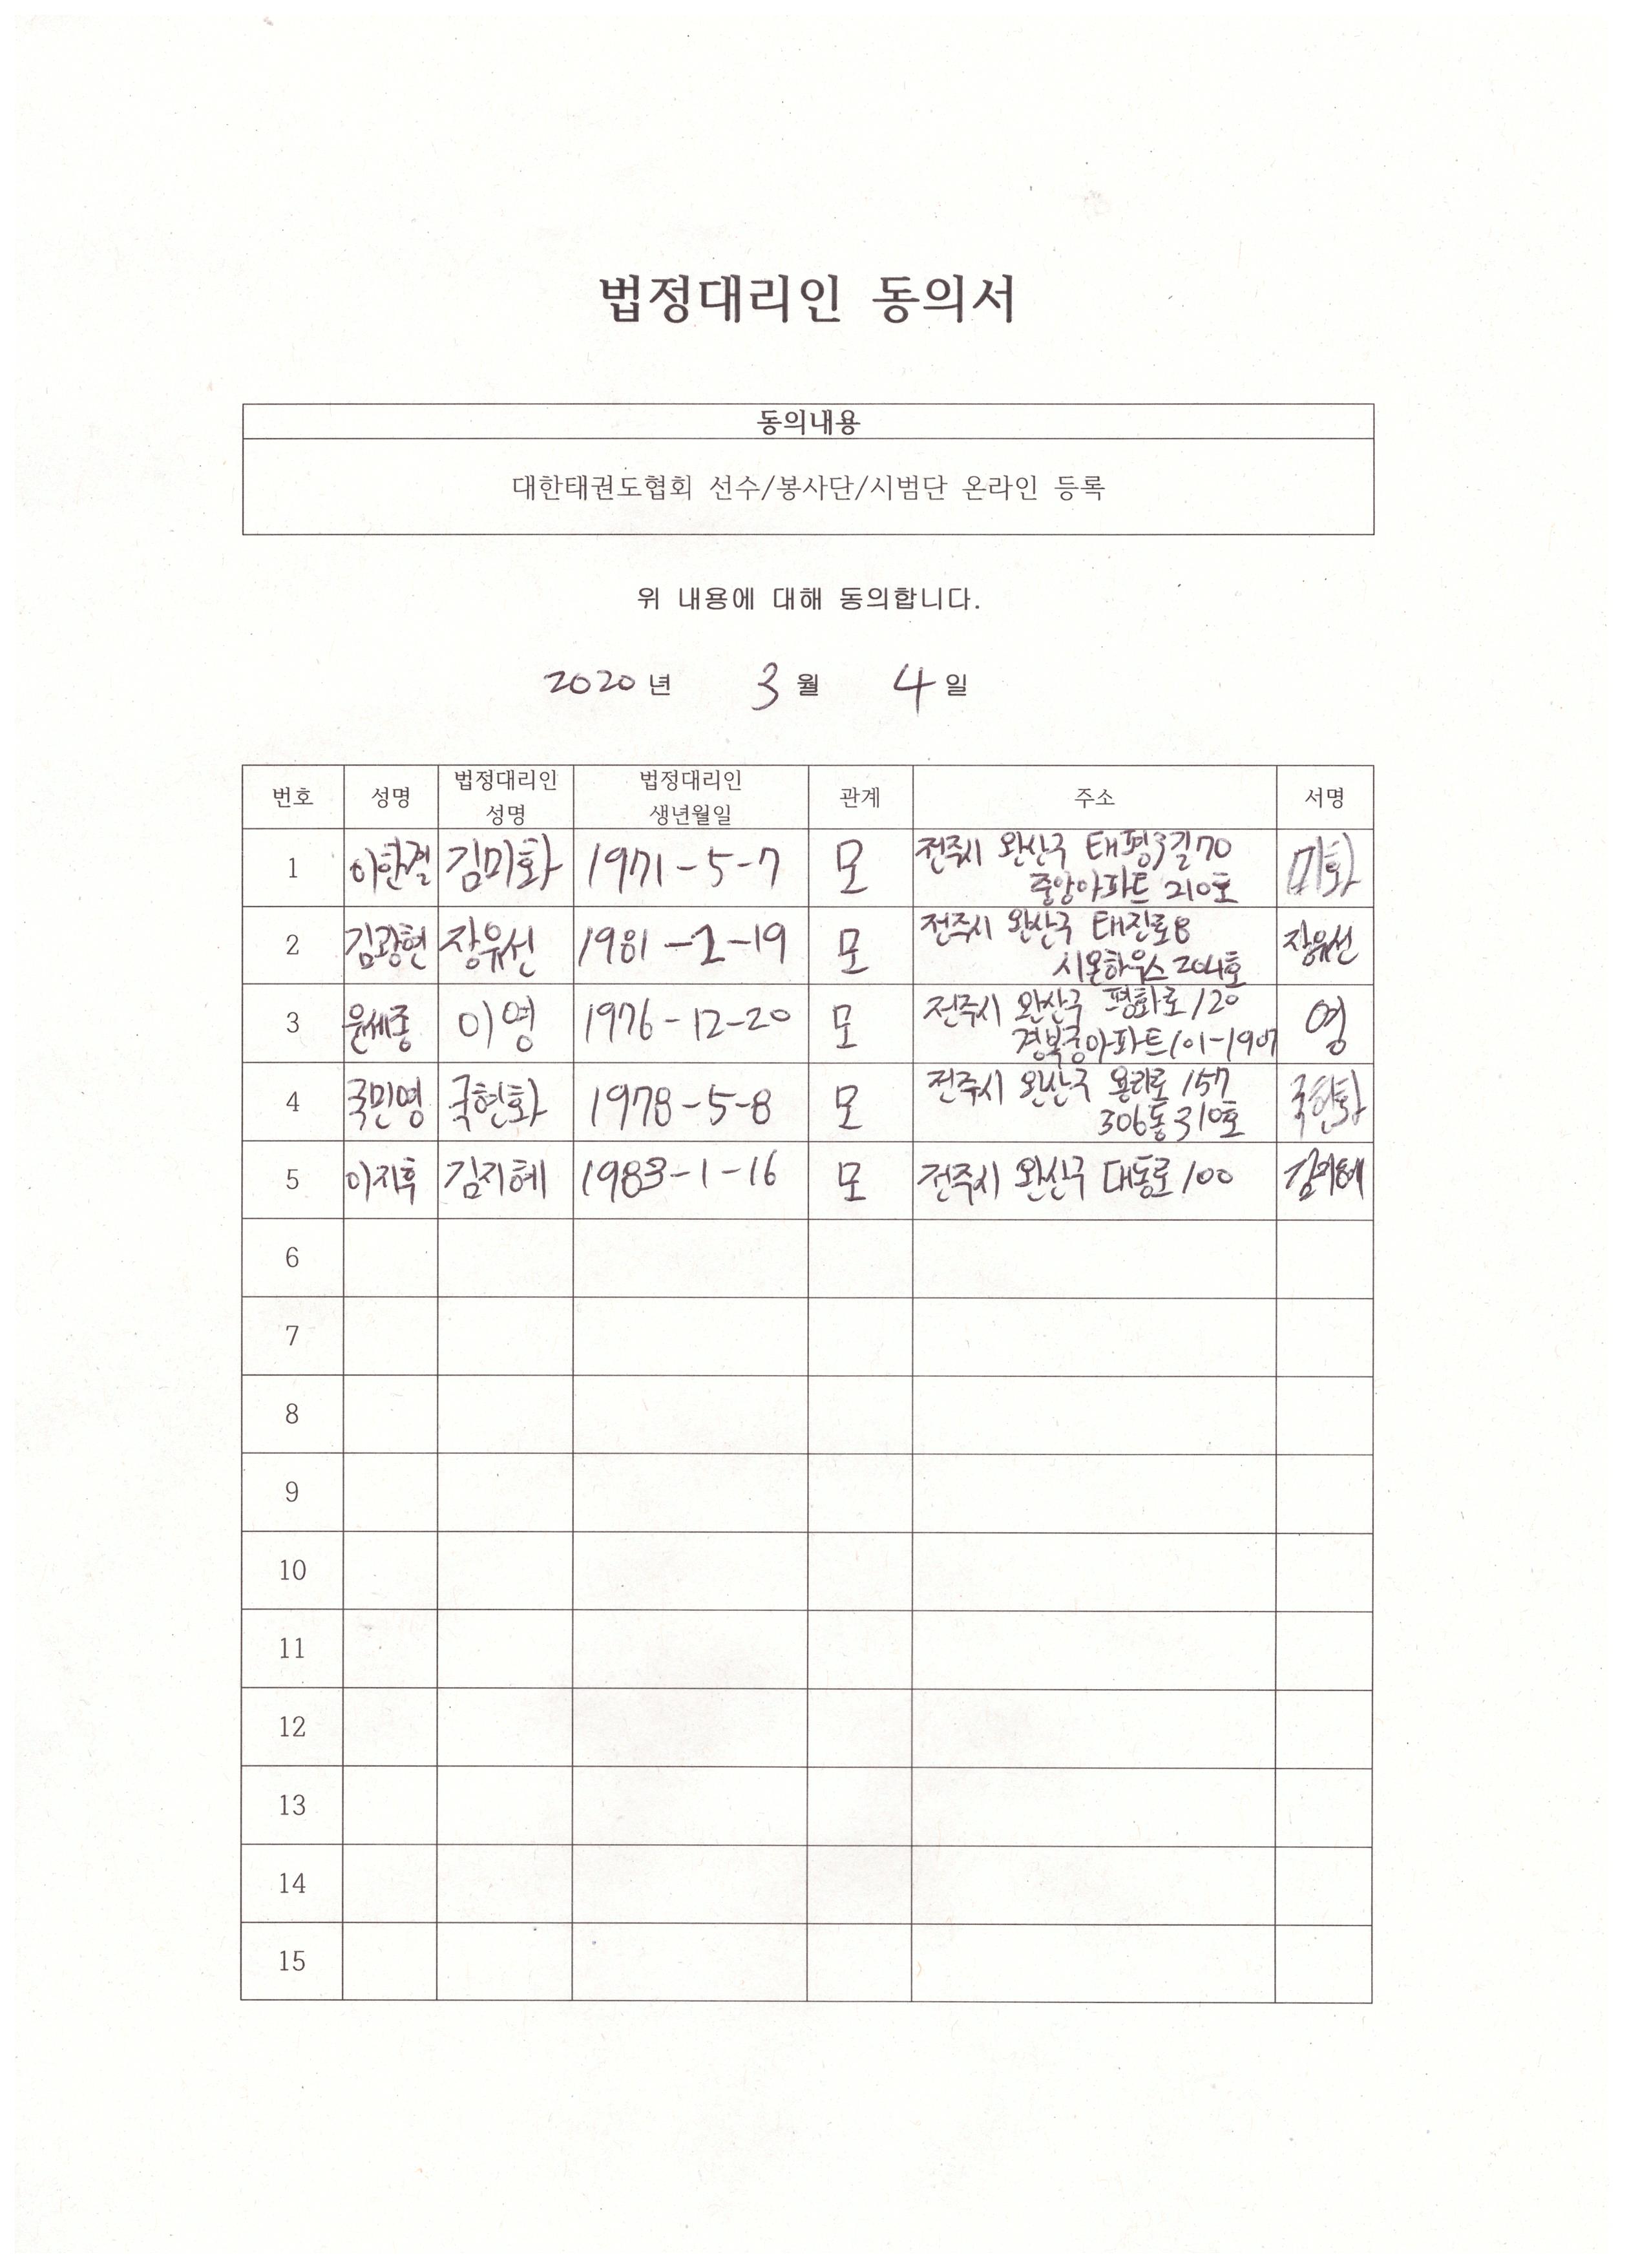 법정대리인 동의서
동의내용
대한태권도협회 선수/봉사단/시범단 온라인 등록
위 내용에 대해 동의합니다.
2020년 3월 4일
번호 성명 법정대리인 성명 법정대리인 생년월일 관계 주소 서명
1 이한결 김미화 1971-5-7 모 전주시 완산구 태평3길70 미화
중앙아파트 210호
2 김광현 장유선 1981-2-19 모 전주시 완산구 태진로8 장유선
시온하우스 204호
3 윤세종 이영 1976-12-20 모 전주시 완산구 평화로/20 영
경복궁아파트 101-1907
4 국민영 국현화 1978-5-8 모 전주시 완산구 용리로 157 국현화
306동 310호
5 이지후 김지혜 1983-1-16 모 전주시 완산구 대동로 100 김지혜
6
7
8
9
10
11
12
13
14
15